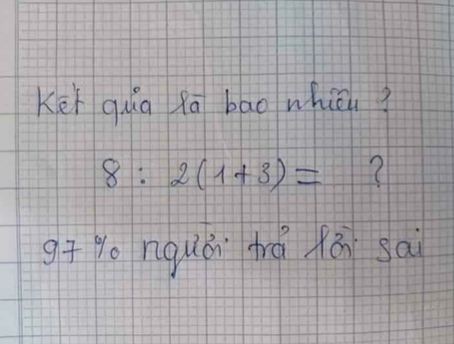 Kết quả là bao nhiêu ?
8 : 2(1+3) = ?
97 % người trả lời sai